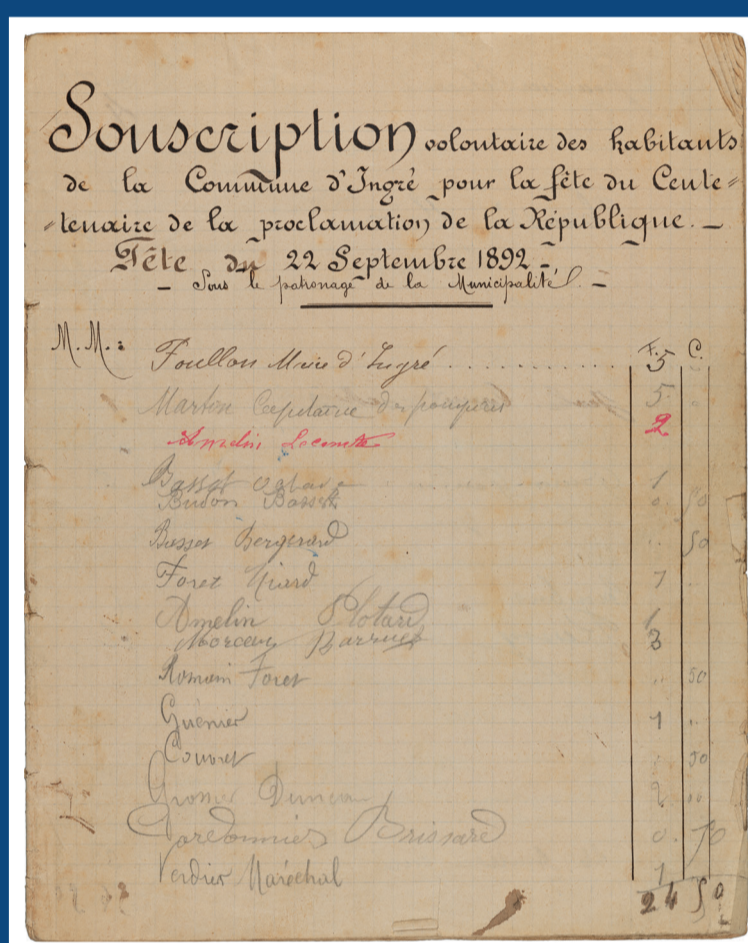 Souscription volontaire des habitants
de la Commune d'Ingré pour la fête du Cente=
=tenaire de la proclamation de la République. _
Fête du 22 Septembre 1892 -
- Sous le patronage de la Municipalité. -
M.M.: F. C.
Foullon Maire d'Ingré 5 "
Martin Capitaine des pompiers 5 "
Amelin Lecomte 2
Basset 1
Budon Basset 0 50
Basset Bergerard " 50
Foret Girard 1 "
Amelin Plotard 1
Morceau Barruet 3
Romain Foret " 50
Guénier 1 "
Couvret 50
Grosnier 2 "
Cordonnier Brissard 0. 50
Verdier Maréchal 1
24 50